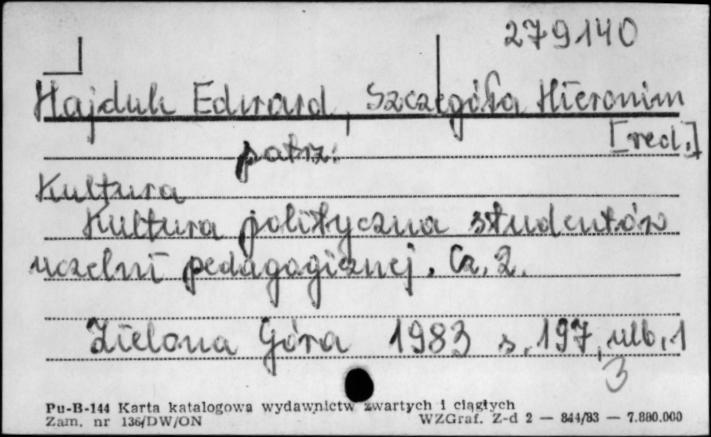 279140
Hajduk Edward, Szczegóła Hieronim
[red.]
patrz:
Kultura
Kultura polityczna studentów
uczelni pedagogicznej. Cz. 2.
Zielona Góra 1983 s. 197, nlb. 1
3
Pu-B-144 Karta katalogowa wydawnictw zwartych i ciągłych
Zam. nr 136/DW/ON WZGraf. Z-d 2 — 844/83 — 7.800.000